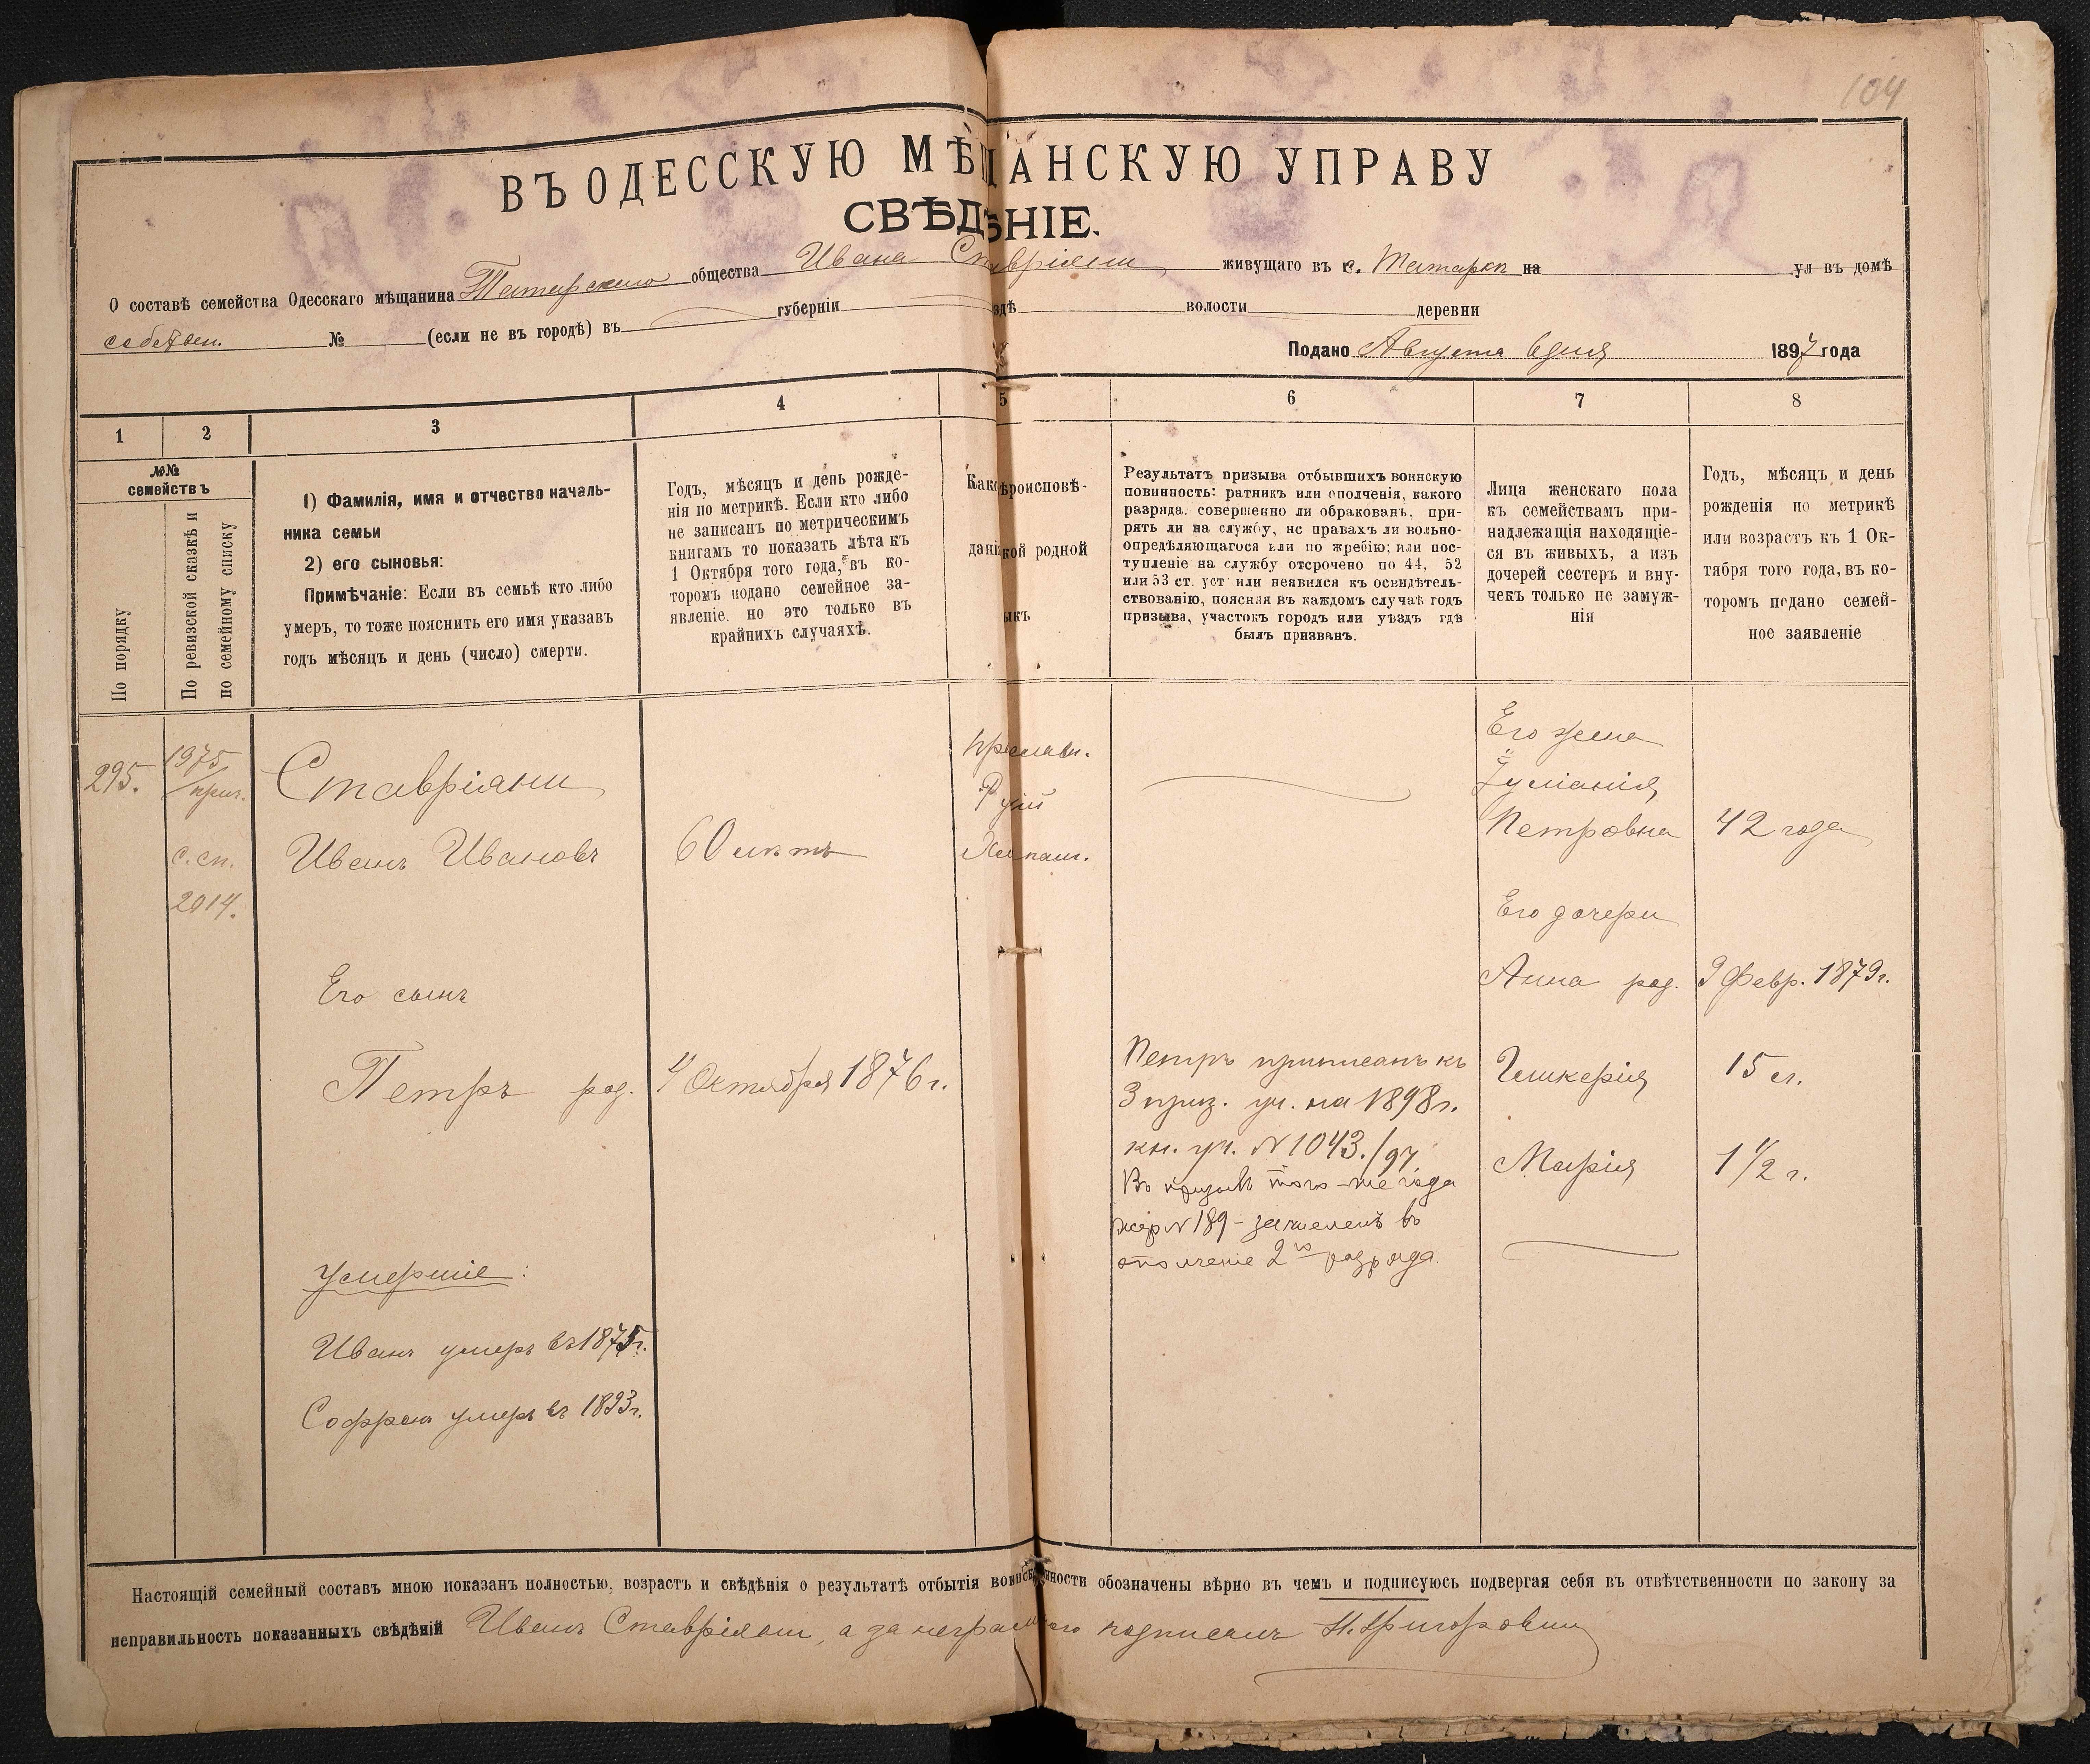 104
ВЪ ОДЕССКУЮ МѢЩАНСКУЮ УПРАВУ
СВѢДѢНІЕ.
О составѣ семейства Одесскаго мѣщанина Татарскаго общества Ивана Ставріани живущаго въ с. Татарки на ул въ домѣ
собствен. № (если не въ городѣ) въ губерніи здѣ волости деревни
Подано Августа 6 дня 1897 года
1 2 3 4 5 6 7 8
№№ семействъ
По порядку
По ревизской сказкѣ и
по семейному списку
1) Фамилія, имя и отчество началь-
ника семьи
2) его сыновья:
Примѣчаніе: Если въ семьѣ кто либо
умеръ, то тоже пояснить его имя указавъ
годъ мѣсяцъ и день (число) смерти.
Годъ, мѣсяцъ и день рожде-
нія по метрикѣ. Если кто либо
не записанъ по метрическимъ
книгамъ то показать лѣта къ
1 Октября того года, въ ко-
торомъ подано семейное за-
явленіе. но это только въ
крайнихъ случаяхъ.
Како роисповѣ-
дані кой родной
ыкъ
Результатъ призыва отбывшихъ воинскую
повинность: ратникъ или ополченія, какого
разряда. совершенно ли обракованъ, при-
рять ли на службу, нс правахъ ли вольно-
опредѣляющагося или по жребію; или пос-
тупленіе на службу отсрочено по 44, 52
или 53 ст. уст или неявился къ освидѣтель-
ствованію, поясняя въ каждомъ случаѣ годъ
призыва, участокъ городъ или уѣздъ гдѣ
былъ призванъ.
Лица женскаго пола
къ семействамъ при-
надлежащія находящіе-
ся въ живыхъ, а изъ
дочерей сестеръ и вну-
чекъ только не замуж-
нія
Годъ, мѣсяцъ и день
рожденія по метрикѣ
или возрастъ къ 1 Ок-
тября того года, въ ко-
торомъ подано семей-
ное заявленіе
295.
1975
/прил.
с. сп.
2014.
Ставріани
Иванъ Ивановъ
60 лѣтъ
Православн.
Его жена
Петровна
42 года
Его дочери
Его сынъ
Анна род. 9 Февр. 1879 г.
Петръ род. 4 Октября 1876 г.
Гликерія 15 л.
Марія 1 1/2 г.
Петръ приписанъ къ
3 приз. уч. на 1898 г.
кн. уч. N 1043./97.
Въ призывѣ того-же года
жер N 189 - зачисленъ въ
ополченіе 2го разряда.
Умершіе:
Иванъ умеръ въ 1875 г.
Софронъ умеръ въ 1893 г.
Настоящій семейный составъ мною показанъ полностью, возрастъ и свѣдѣнія о результатѣ отбытія воинск нности обозначены вѣрно въ чемъ и подписуюсь подвергая себя въ отвѣтственности по закону за
неправильность показанныхъ свѣдѣній Иванъ Ставріани, а за неграмотнаго подписалъ Н. Григорович